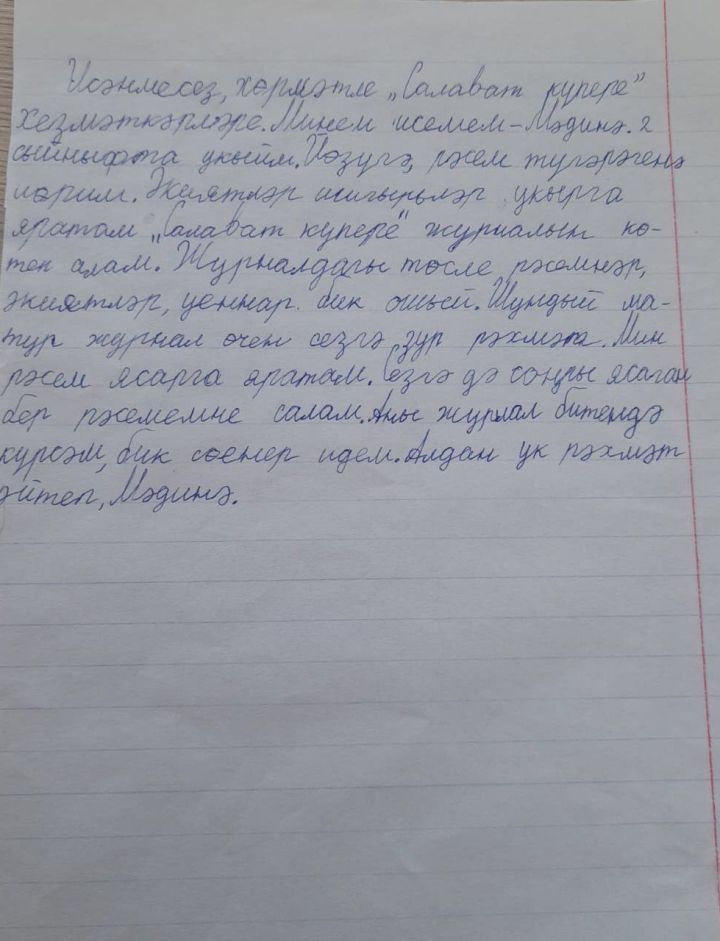 Исәнмесез, хөрмәтле "Салават күпере"
хезмәткәрләре. Минем исемем - Мәдинә. 2
сыйныфта укыйм. Йөзүгә, рәсем түгәрәгенә
йөрим. Әкиятләр шигырьләр укырга
яратам "Салават күпере" журналын кө-
теп алам. Журналдагы төсле рәсемнәр,
әкиятләр, уеннар бик ошый. Шундый ма-
тур журнал өчен сезгә зур рәхмәт. Мин
рәсем ясарга яратам. Сезгә дә соңгы ясаган
бер рәсемемне салам. Аны журнал битендә
күрсәм, бик сөенер идем. Алдан ук рәхмәт
әйтеп, Мәдинә.